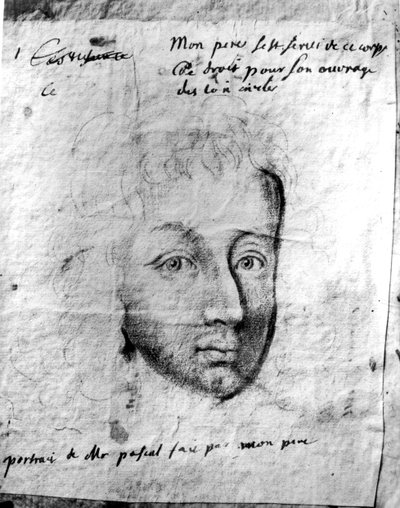 1
Mon pere s'est servi de ce corps
de droit pour son ouvrage
des loix civiles
Ce
portrai de Mr pascal fait par mon pere